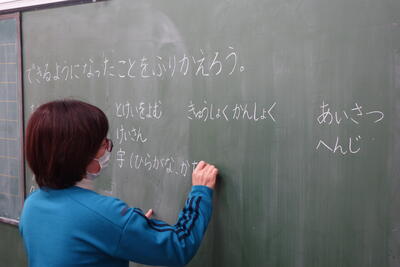 できるようになったことをふりかえろう。
あいさつ
へんじ
きゅうしょくかんしょく
とけいをよむ
けいさん
字(ひらがな、か